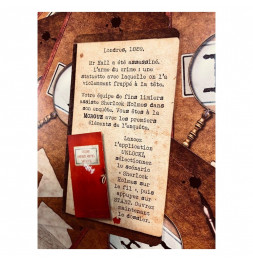 Londres, 1889.
Mr Hall a été assassiné.
L'arme du crime : une
statuette avec laquelle on l'a
violemment frappé à la tête.
Votre équipe de fins limiers
assiste Sherlock Holmes dans
son enquête. Vous êtes à la
MORGUE avec les premiers
éléments de l'enquête.
Lancez
l'application
UNLOCK!,
sélectionnez
le scénario
« Sherlock
Holmes sur
le fil », puis
appuyez sur
START. Ouvrez
maintenant
le dossier.